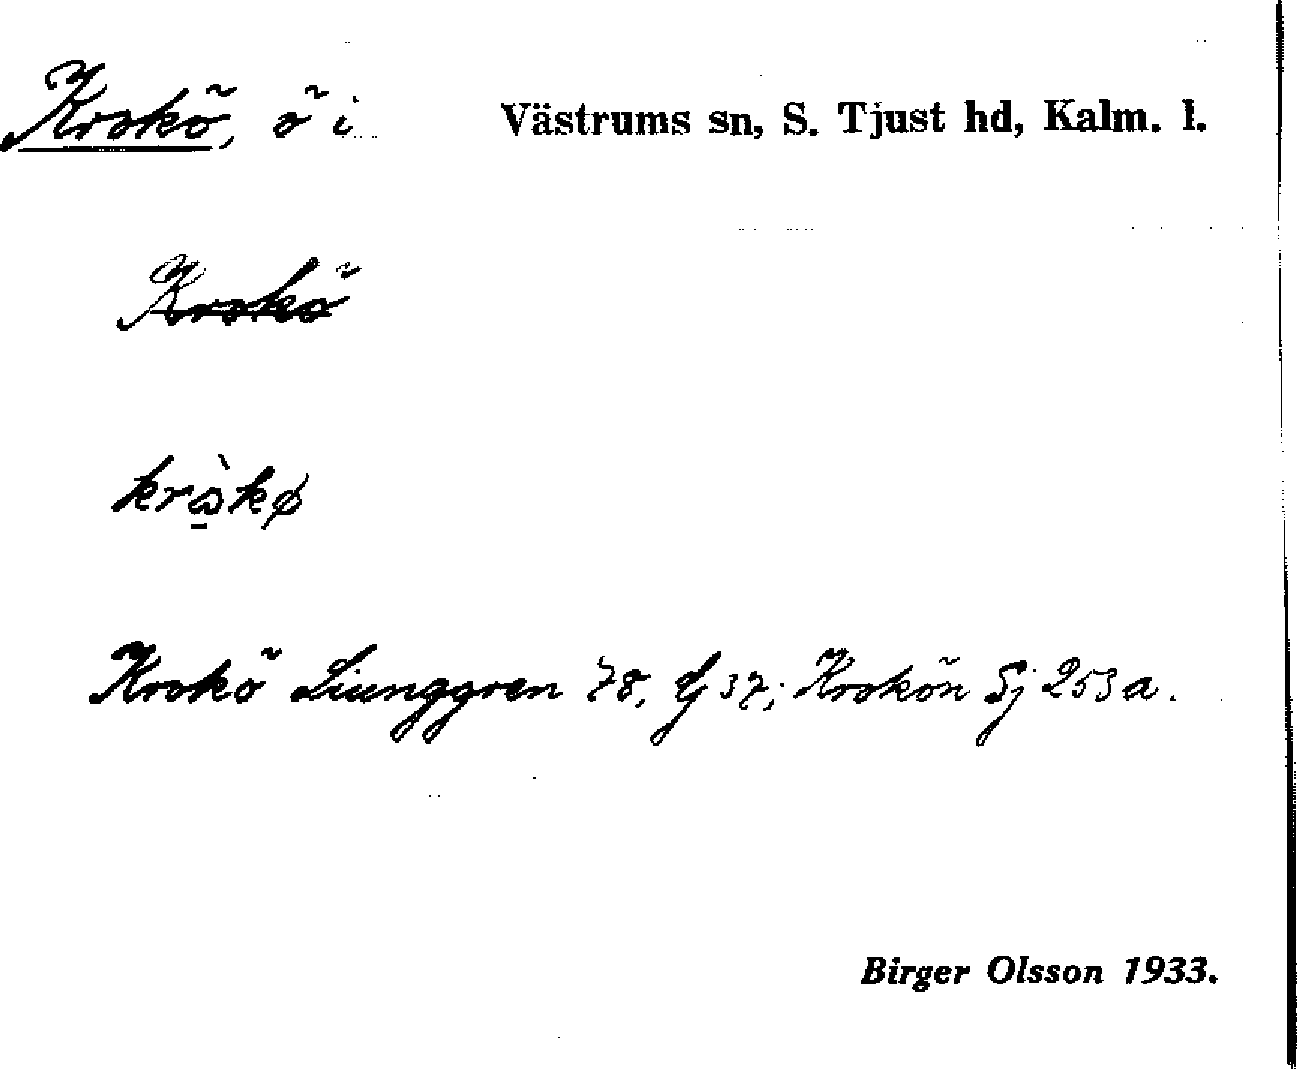 Krokö, ö i Västrums sn, S. Tjust hd, Kalm. l.
Krokö
Krokö Liunggren 78, Gj 37; Krokön Sj 253 a.
Birger Olsson 1933.